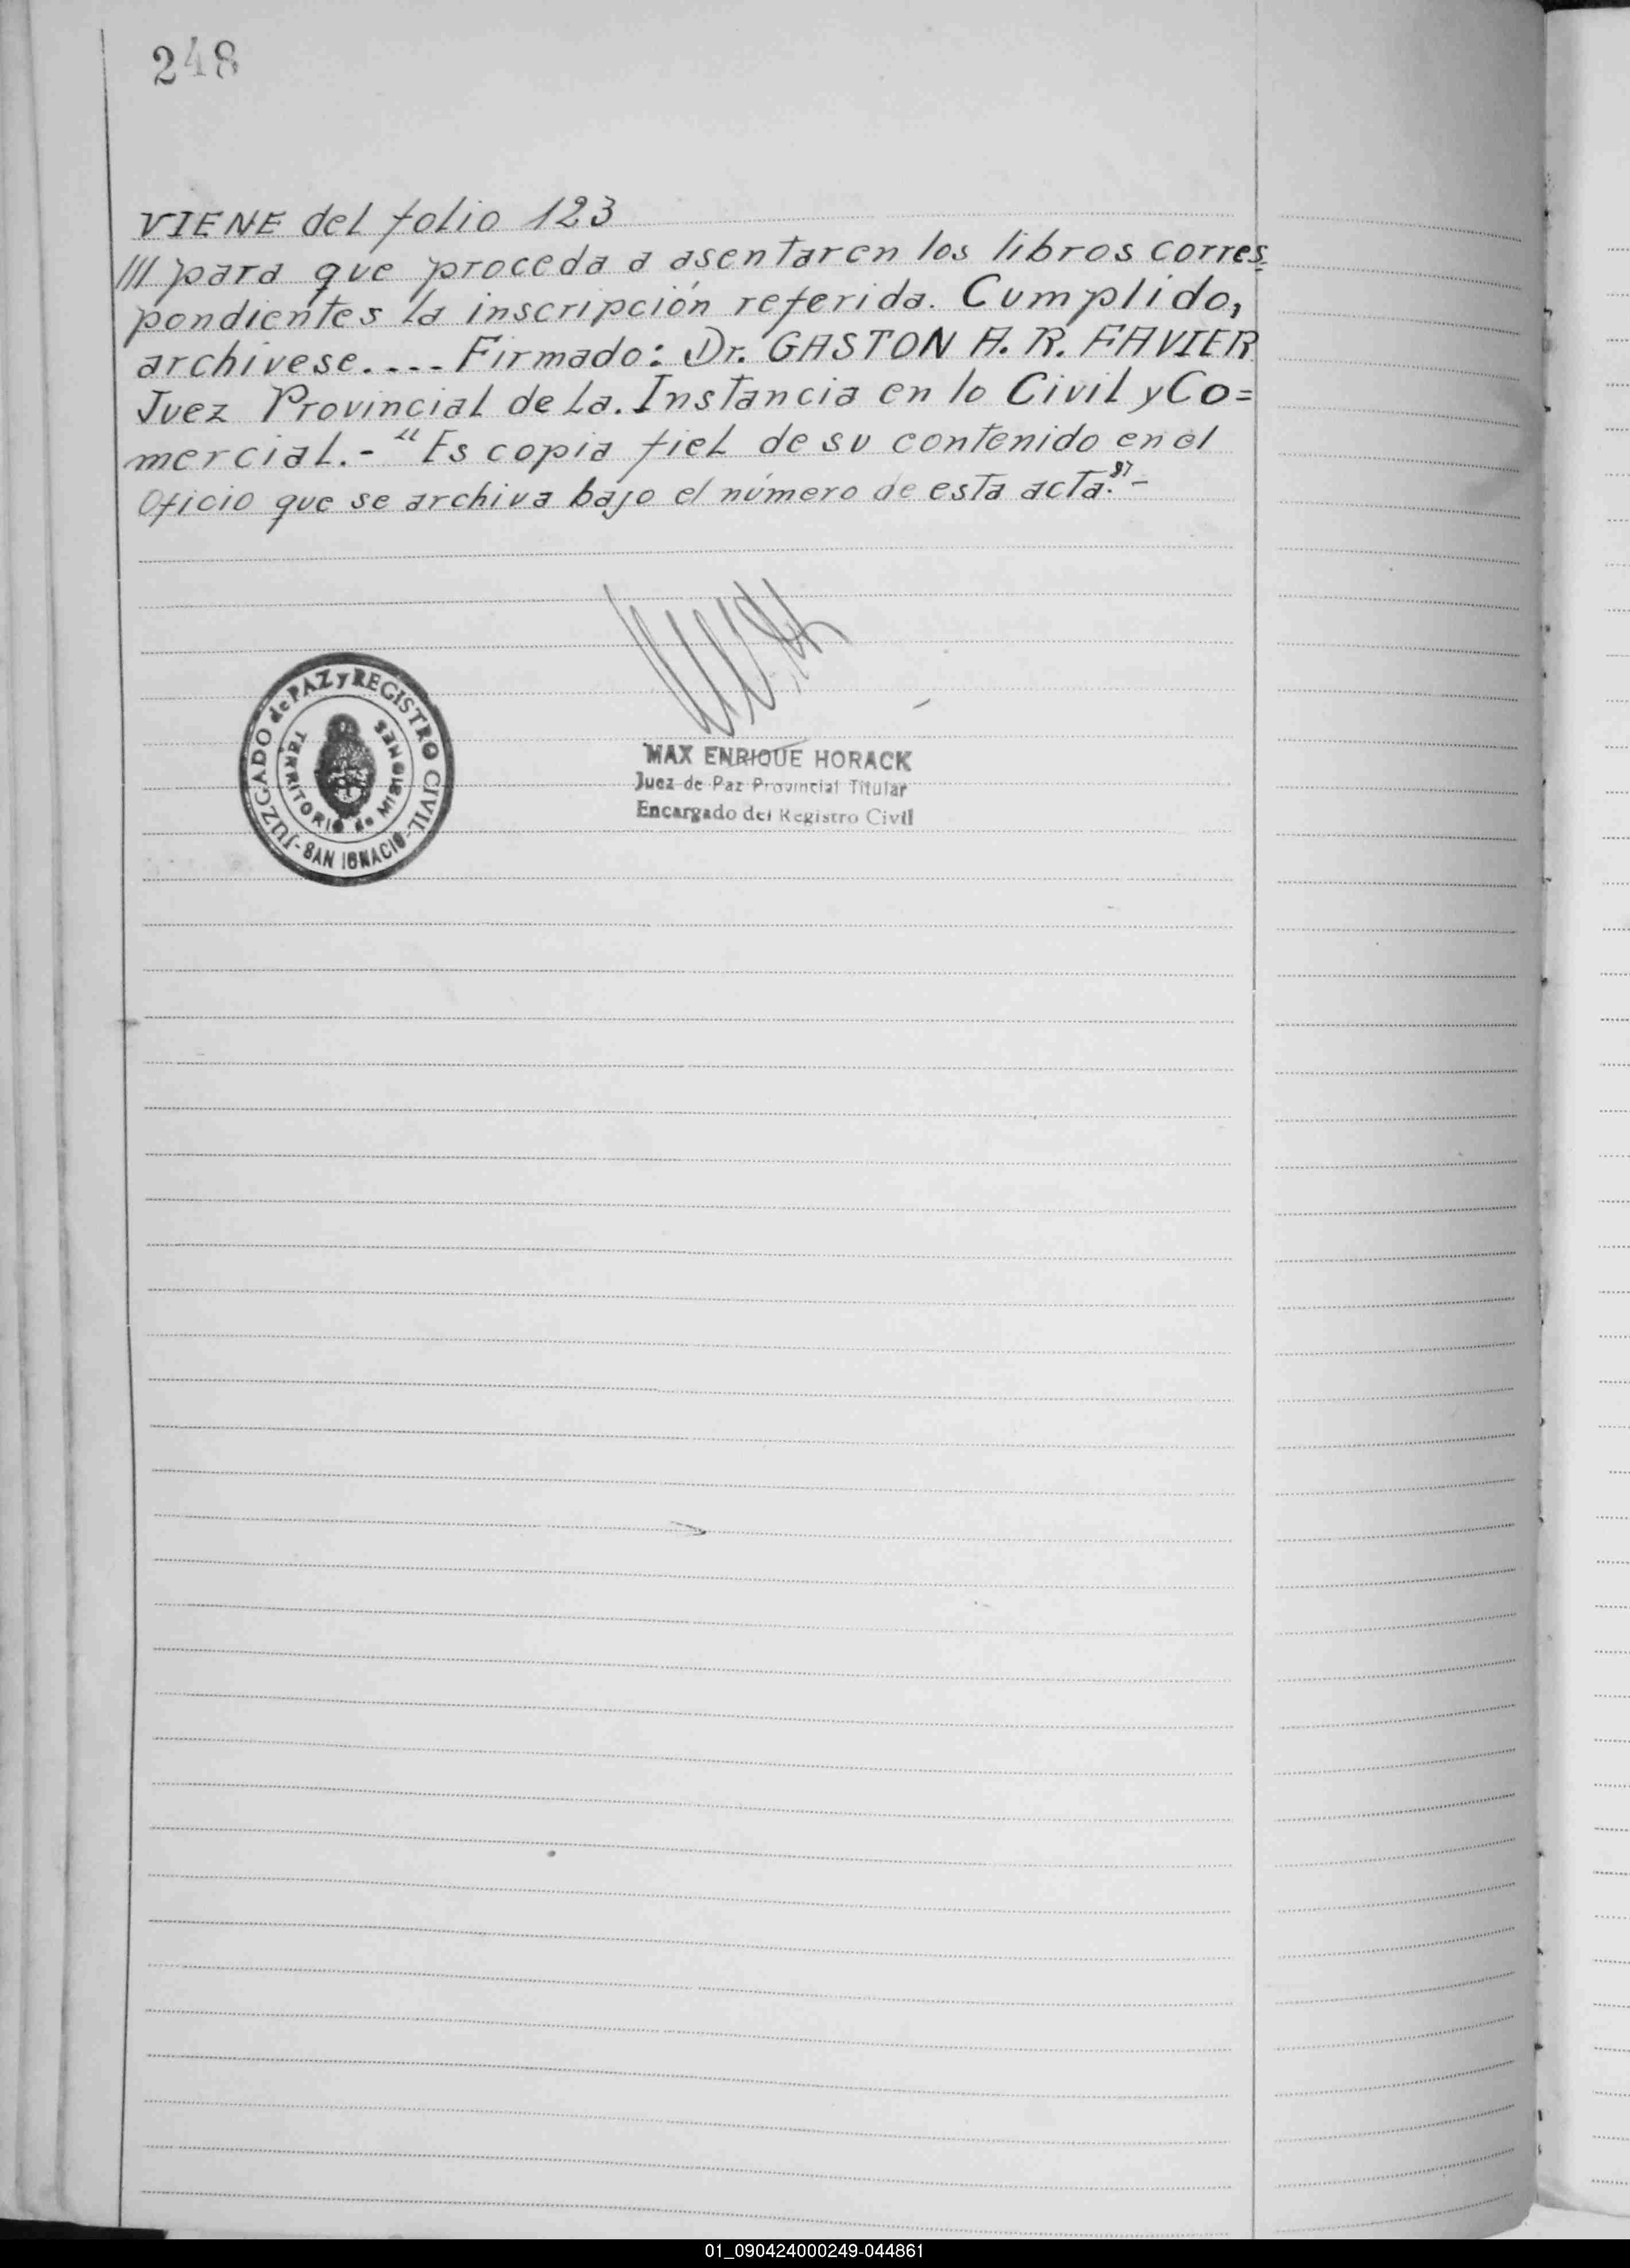 248
VIENE del folio 123
/// para que proceda a asentar en los libros corres-
pondientes la inscripción referida. Cumplido,
archívese.---- Firmado: Dr. GASTON A. R. FAVIER
Juez Provincial de La. Instancia en lo Civil y Co=
mercial.- "Es copia fiel de su contenido en el
Oficio que se archiva bajo el número de esta acta."-
JUZGADO de PAZ y REGISTRO CIVIL
-SAN IGNACIO-
TERRITORIO de MISIONES
MAX ENRIQUE HORACK
Juez de Paz Provincial Titular
Encargado del Registro Civil
01_090424000249-044861